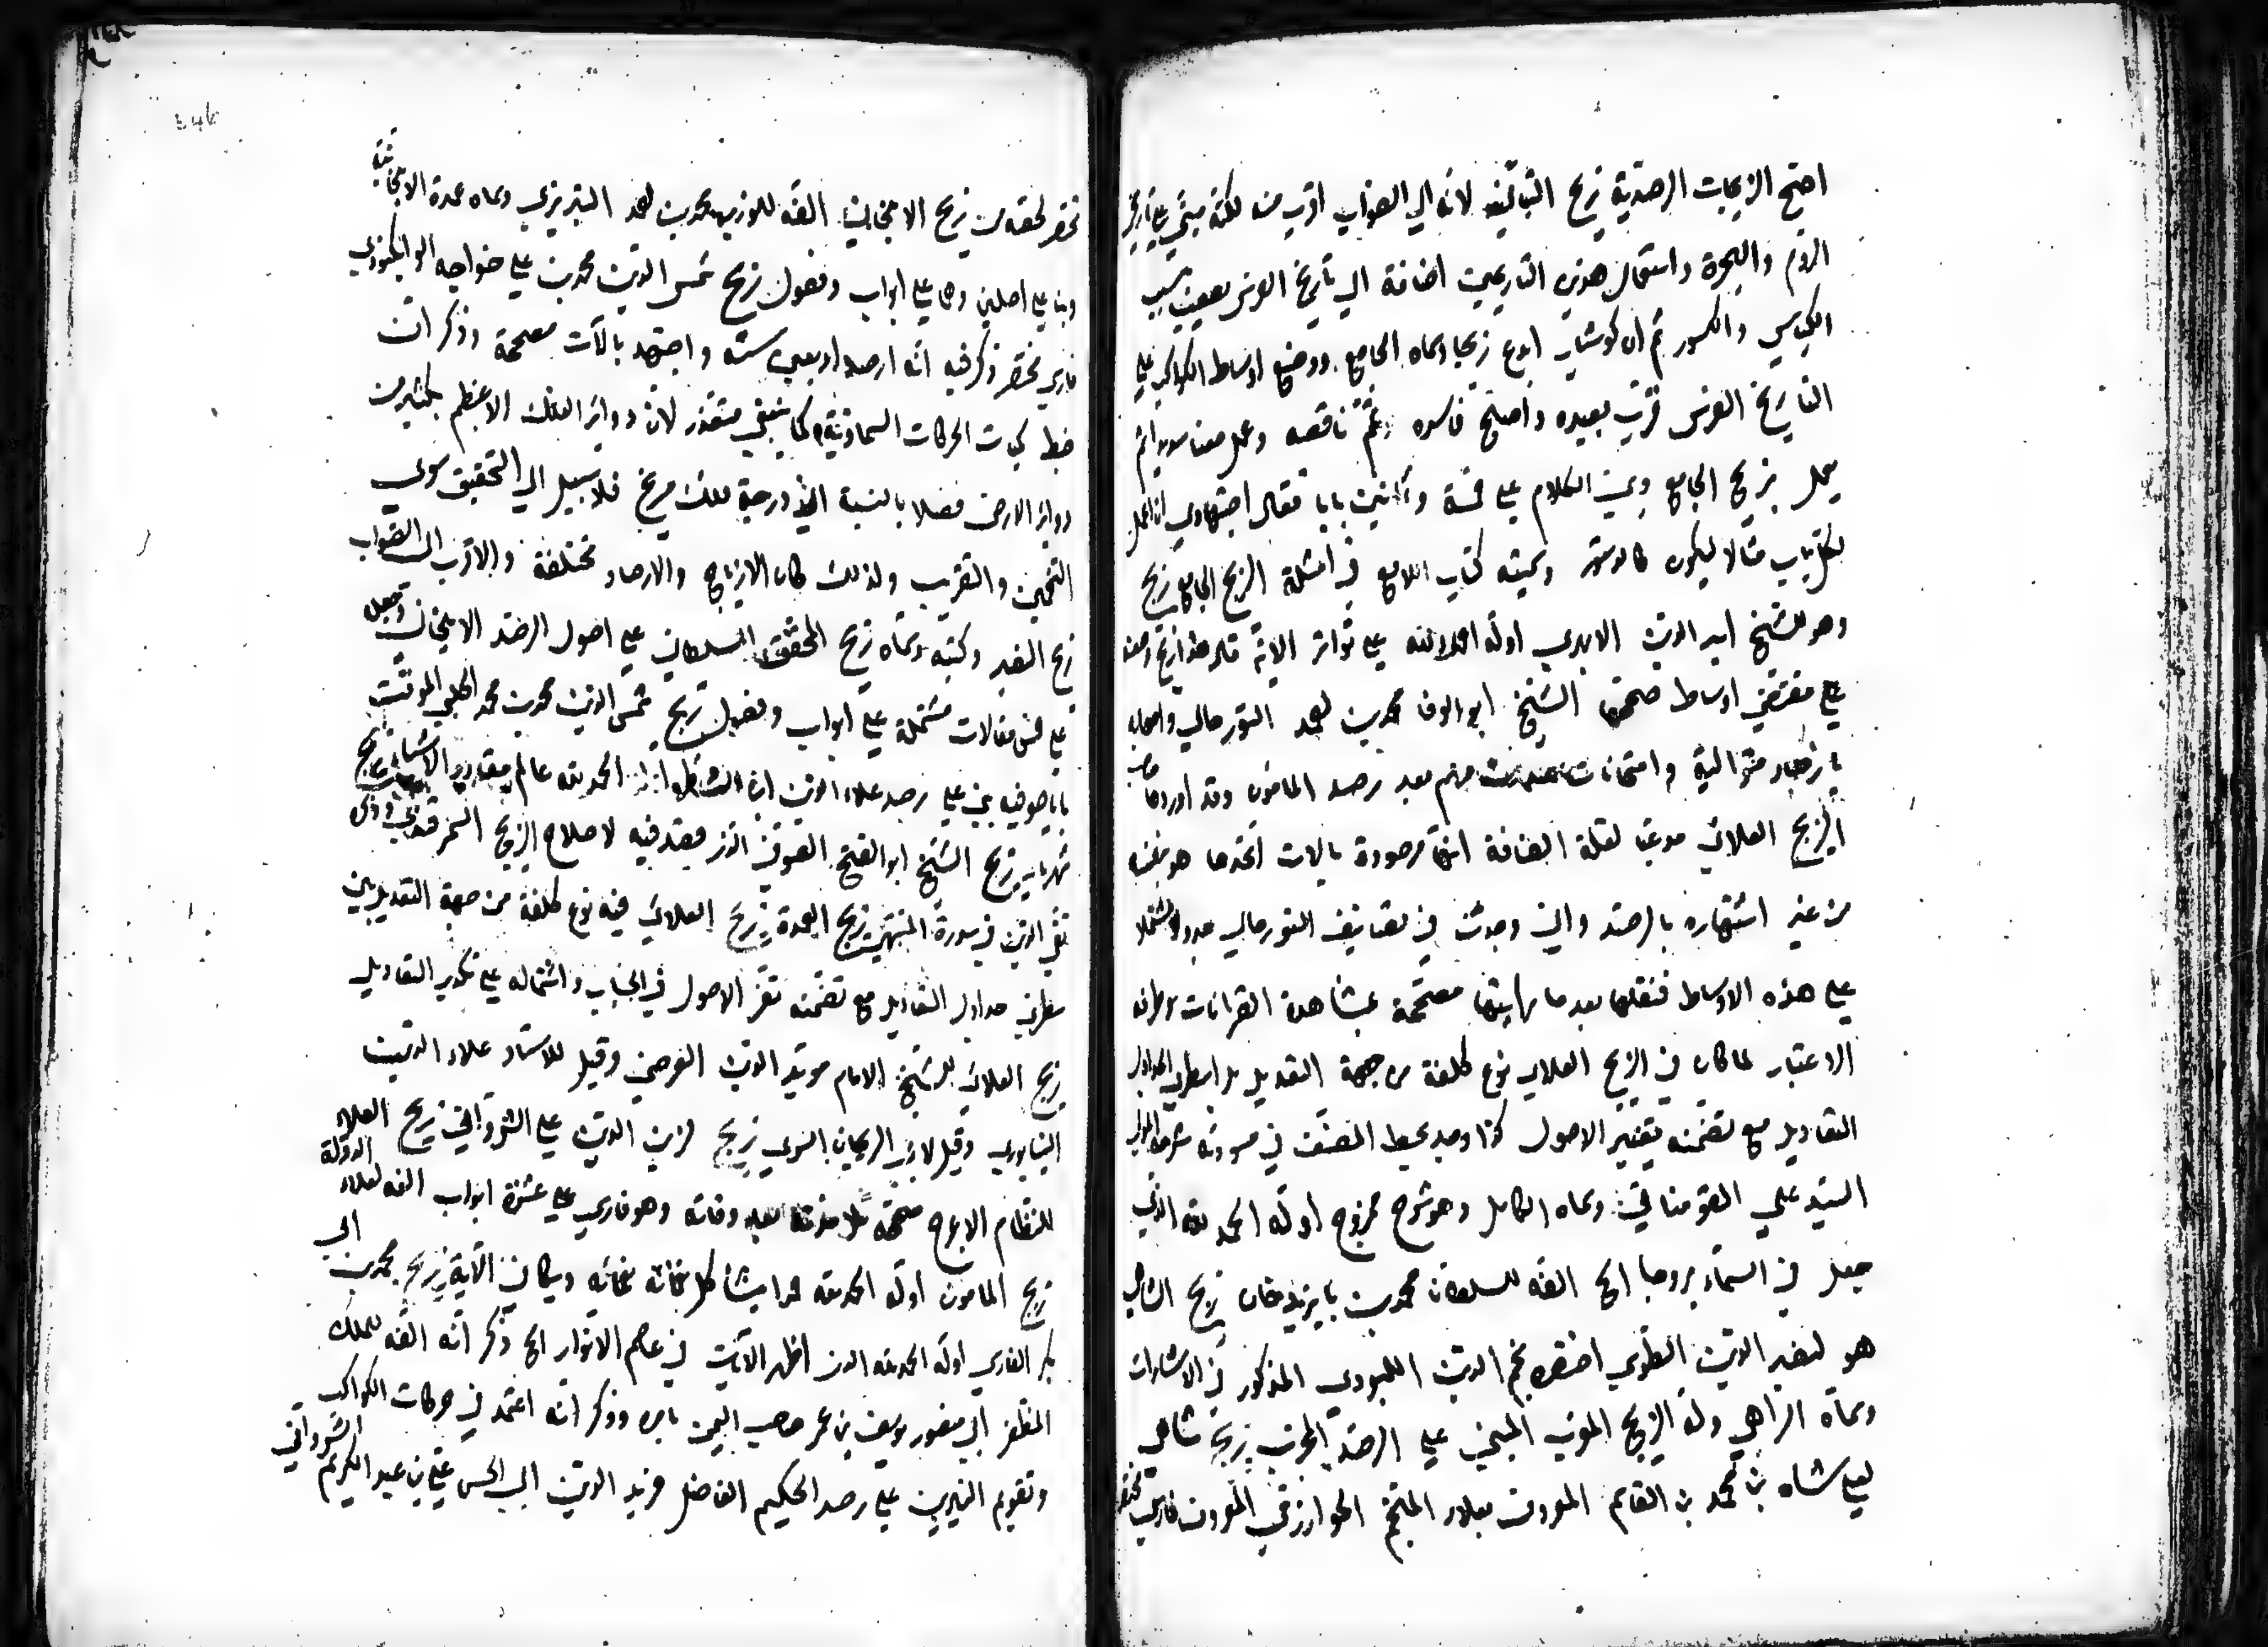 اصح الزيجات الرصدية زيج البتانى لانه الى الصواب اقرب منه لكنه مبنى على تاريخى
الروم والهجرة واستعمال هذين التاريخين اضافة الى تاريخ الفرس يصعب بسبب
الكبائس والكسور ثم ان كوشيار ابدع زيجا وسماه الجامع ووضع اوساط الكواكب على
التاريخ الفرس قرب بعيده واصلح فاسده وتمم ناقصه وعمل
يعمل بزيج الجامع وبين الكلام على خمسة وثمانين بابا فقال اجتهادى ان اعمل
لكل باب مثالا ليكون كالدستور وسميته كتاب اللامع فى امثلة الزيج الجامع زيج
وهو للشيخ اثير الدين الابهرى اوله احمد الله على تواتر آلائه قال هذا زيج وضعته
على مقتضى اوساط صححها الشيخ ابو الوفا محمد بن احمد البوزجانى واصحابه
بارصاد متوالية وامتحانات منهم بعد رصد المامون وقد اوردها صاحب
الزيج العلائى مدعيا لقلة انصافه انها مرصودة بالات اتخذها هو بنفسه
من غير اشتهاره بالرصد وانى وجدت فى تصانيف البوزجانى جدولا مشتملا
على هذه الاوساط فنقلتها بعد ما رايتها مصححة بمشاهدة القرانات وطرائف
الاعتبار لما كان فى الزيج العلائى نوع كلفة من جهة التعديل بين اسطر جداول
التعاديل مع تضمنه تغيير الاصول كذا وجد بخط المصنف فى مسودته شرحه المولى
السيد على القومناتى وسماه الكامل وهو شرح ممزوج اوله الحمد لله الذى
جعل فى السماء بروجا الخ الفه للسلطان محمد بن بايزيد خان زيج الشاهى
هو لنصير الدين الطوسى اختصره نجم الدين اللبودى المذكور فى الاشارات
وسماه الزاهى وله الزيج المقرب المبنى على الرصد المجرب زيج شاهى
لعلى شاه بن محمد بن القاسم المعروف بعلاء المنجم الخوارزمى المعروف فارسى مختصر
مختصر لخصه من زيج الايلخانى الفه للوزير محمد بن احمد التبريزى وسماه عمدة الايلخانية
وبنا على اصلين وهما على ابواب وفصول زيج شمس الدين محمد بن على خواجه الوابكنوى
فارسى مختصر ذكر فيه انه ارصد اربعين سنة واجتهد بالآت مصححة وذكر ان
ضبط كميات الحركات السماوية كما ينبغى متعذر لان دوائر الفلك الاعظم بكثير من
دوائر الارض فضلا بالنسبة الى درجة فلك مريخ فلا سبيل الى التحقيق سوى
التخمين والتقريب ولذلك كان الازياج والارصاد مختلفة والاقرب الى الصواب
زيج النصير وكتبه وسماه زيج المحقق السلطانى على اصول الرصد الايلخانى وجعل
على خمس مقالات مشتملة على ابواب وفصول زيج شمس الدين محمد بن محمد الحلبى الموقت
بايا صوفيه بنى على رصد علاء الدين ابن الشاطر اوله الحمد لله عالم مقادير الاشياء زيج
شهريار زيج الشيخ ابو الفتح الصوفى الذى قصد فيه لاصلاح الزيج السمرقندى وذكر
تقى الدين فى سدرة المنتهى زيج العمدة زيج العلائى فيه نوع كلفة من جهة التعديل بين
سطرى جداول التعاديل مع تضمنه تغير الاصول فى الحساب واشتماله على تكدير التعاديل
زيج العلائى للشيخ الامام مويد الدين العرضى وقيل للاستاد علاء الدين
النيسابورى وقيل لابى الريحان البيرونى زيج لزين الدين على الشروانى زيج العلاء
للنظام الاعرج صححه تلامذته بعد وفاته وهو فارسى على عشرة ابواب الفه لعلاء الدولة
زيج المامون اوله الحمد لله وسكان الآية زيج محمد بن ابى
بكر الفارسى اوله الحمد لله الذى اظهر الآيات فى عالم الانوار الخ ذكر انه الفه للملك
المظفر ابى منصور يوسف بن عمر صاحب اليمن بامره وذكر انه اعتمد فى حركات الكواكب
وتقويم النيرين على رصد الحكيم الفاضل فريد الدين ابى الحسن على بن عبد الكريم الشروانى